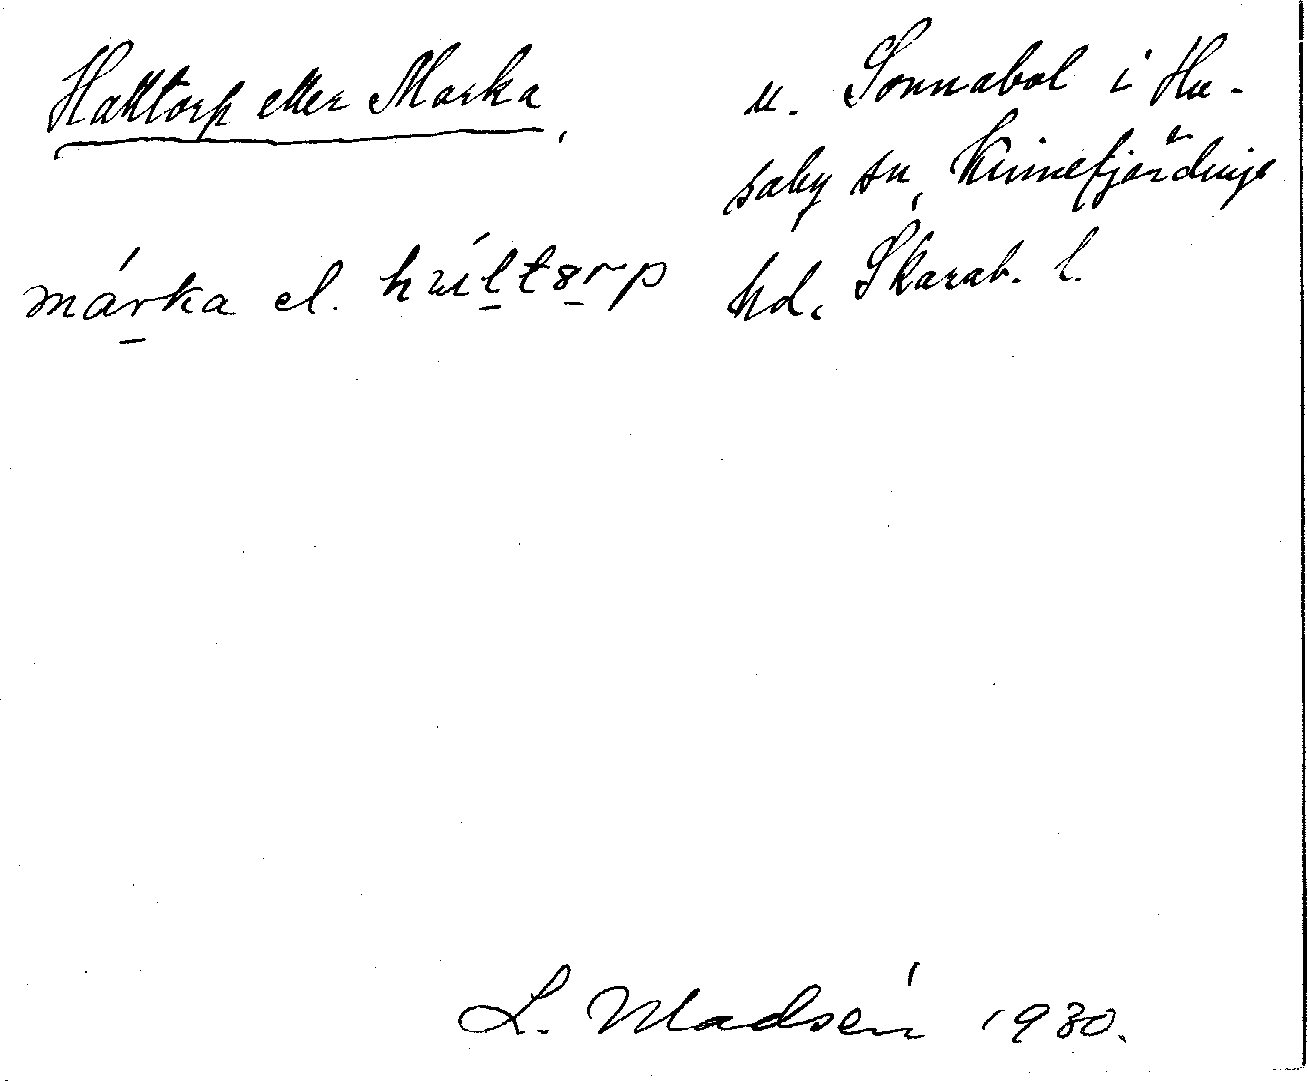 Halltorp eller Marka,
u. Sonnabol i Hu-
saby sn, Kinnefjärdings
hd, Skarab. l.
márka el. hziltorp
L. Madsén 1930.